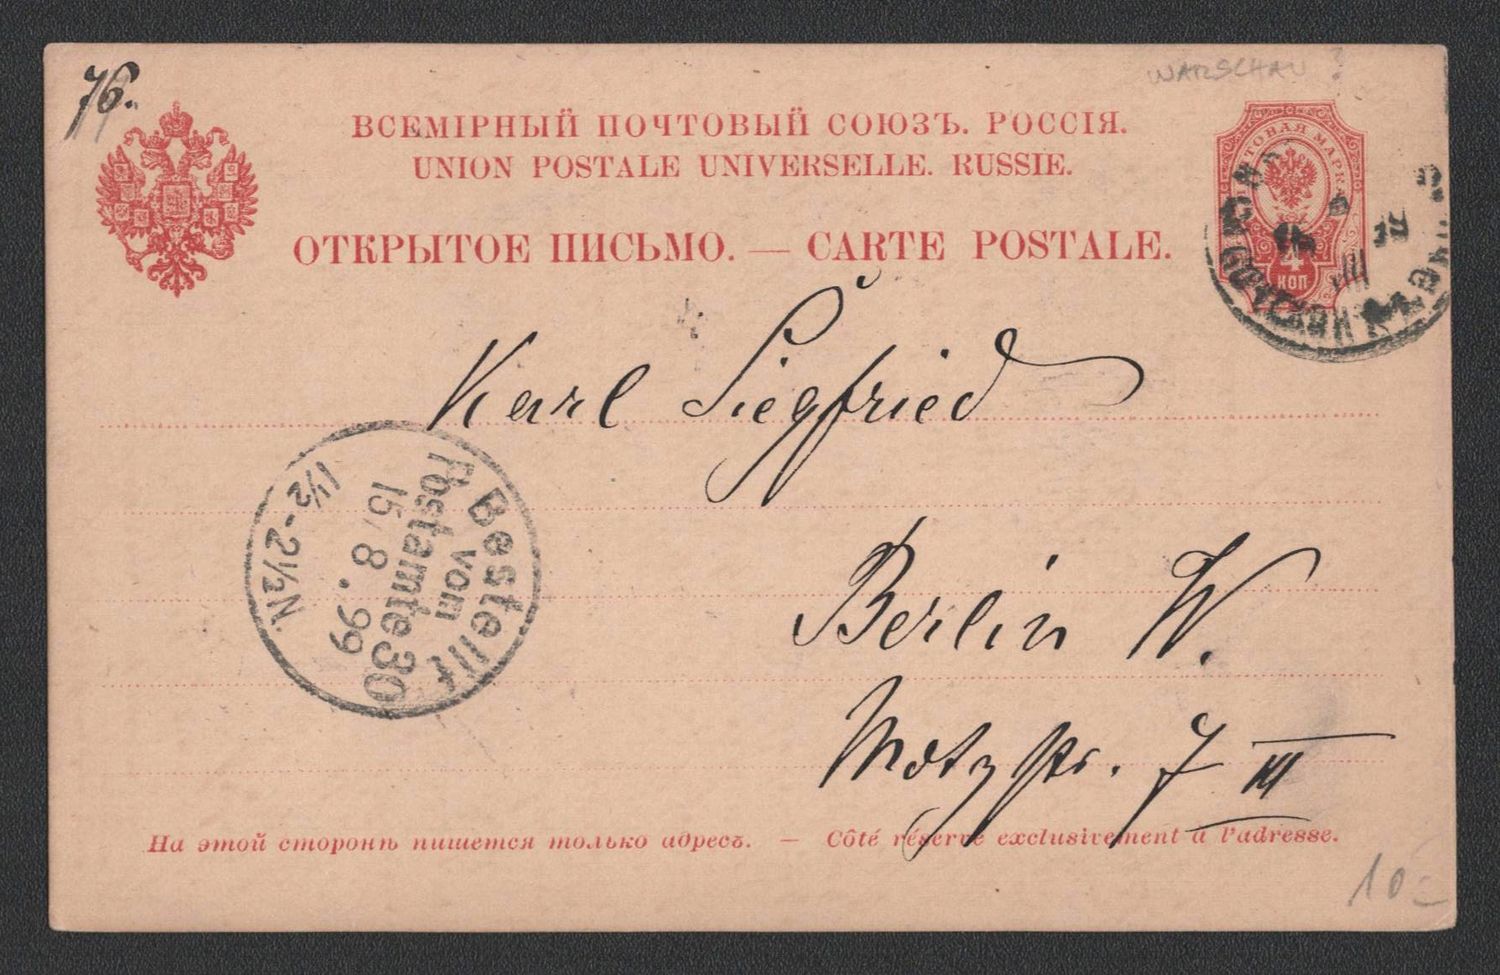 76.
WARSCHAU?
ВСЕМІРНЫЙ ПОЧТОВЫЙ СОЮЗЪ. РОССІЯ.
UNION POSTALE UNIVERSELLE. RUSSIE.
ОТКРЫТОЕ ПИСЬМО. — CARTE POSTALE.
ПОЧТОВАЯ МАРКА
4
КОП
VIII
Karl Siegfried
Bestellt
vom
Postamte 30
15/8.99
1½-2½N.
Berlin W.
Motzstr. 7 III
На этой сторонѣ пишется только адресъ. — Côté réservé exclusivement à l'adresse.
10